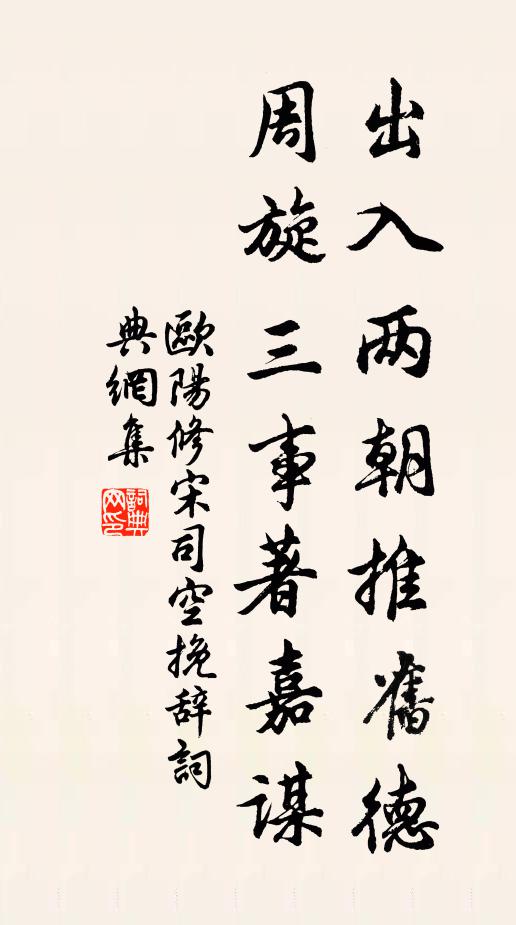 出入两朝推舊德
周旋三事著嘉謀
歐陽修宋司空挽辞詞
典網集
詞典
网印